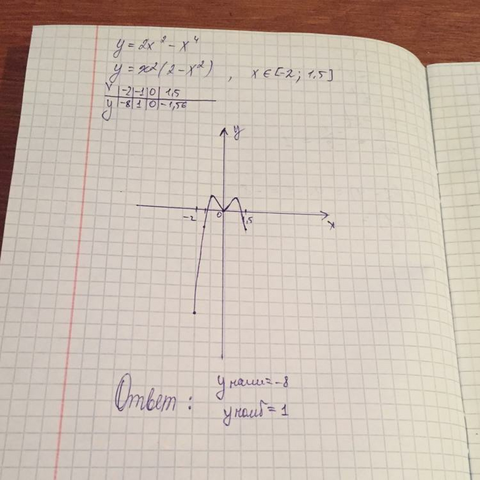 y = 2x² - x⁴
y = x²(2 - x²) , x ∈ [-2; 1,5]
x | -2 | -1 | 0 | 1,5
y | -8 | 1 | 0 | -1,56
y
-2 0 1,5 x
Ответ: y наим = -8
y наиб = 1